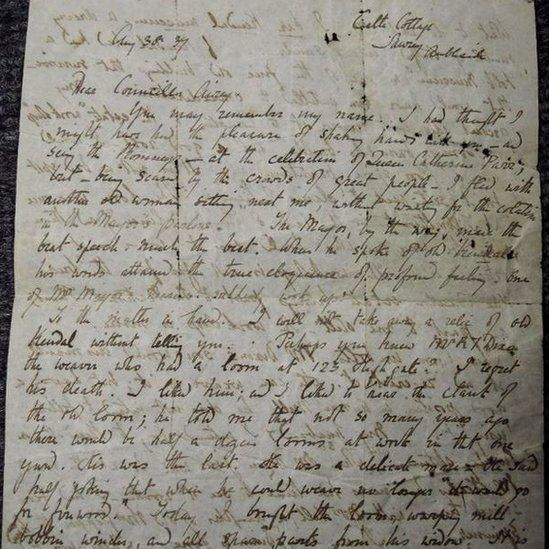 Castle Cottage
Sawrey Ambleside
Aug 30. 37
Dear Councillor
You may remember my name. I had thought I
might have had the pleasure of shaking hands with you - and
seeing the Romneys - at the celebration of Queen Catherine Parr;
but - being scared by the crowds of great people - I fled with
another old woman sitting next me, without waiting for the collation
in the Mayor's parlour. The Mayor, by the way, made the
best speech - much the best. When he spoke of old Kendal
his words attained the true eloquence of profound feeling. one
of Mr Mayor's
To the matter in hand. I will not take away a relic of old
Kendal without telling you. Perhaps you knew Mr R
the weaver who had a loom at 123 Highgate? I regret
his death. I liked him; and I liked to hear the clack of
the old loom; he told me that not so many years ago
there would be half a dozen looms at work in that one
yard. His was the last. He was a delicate man & he said
half joking that when he could weave no longer "it would go
for firewood." Today I bought the loom, warping mill
bobbin winder, and all spare parts from his widow. It is